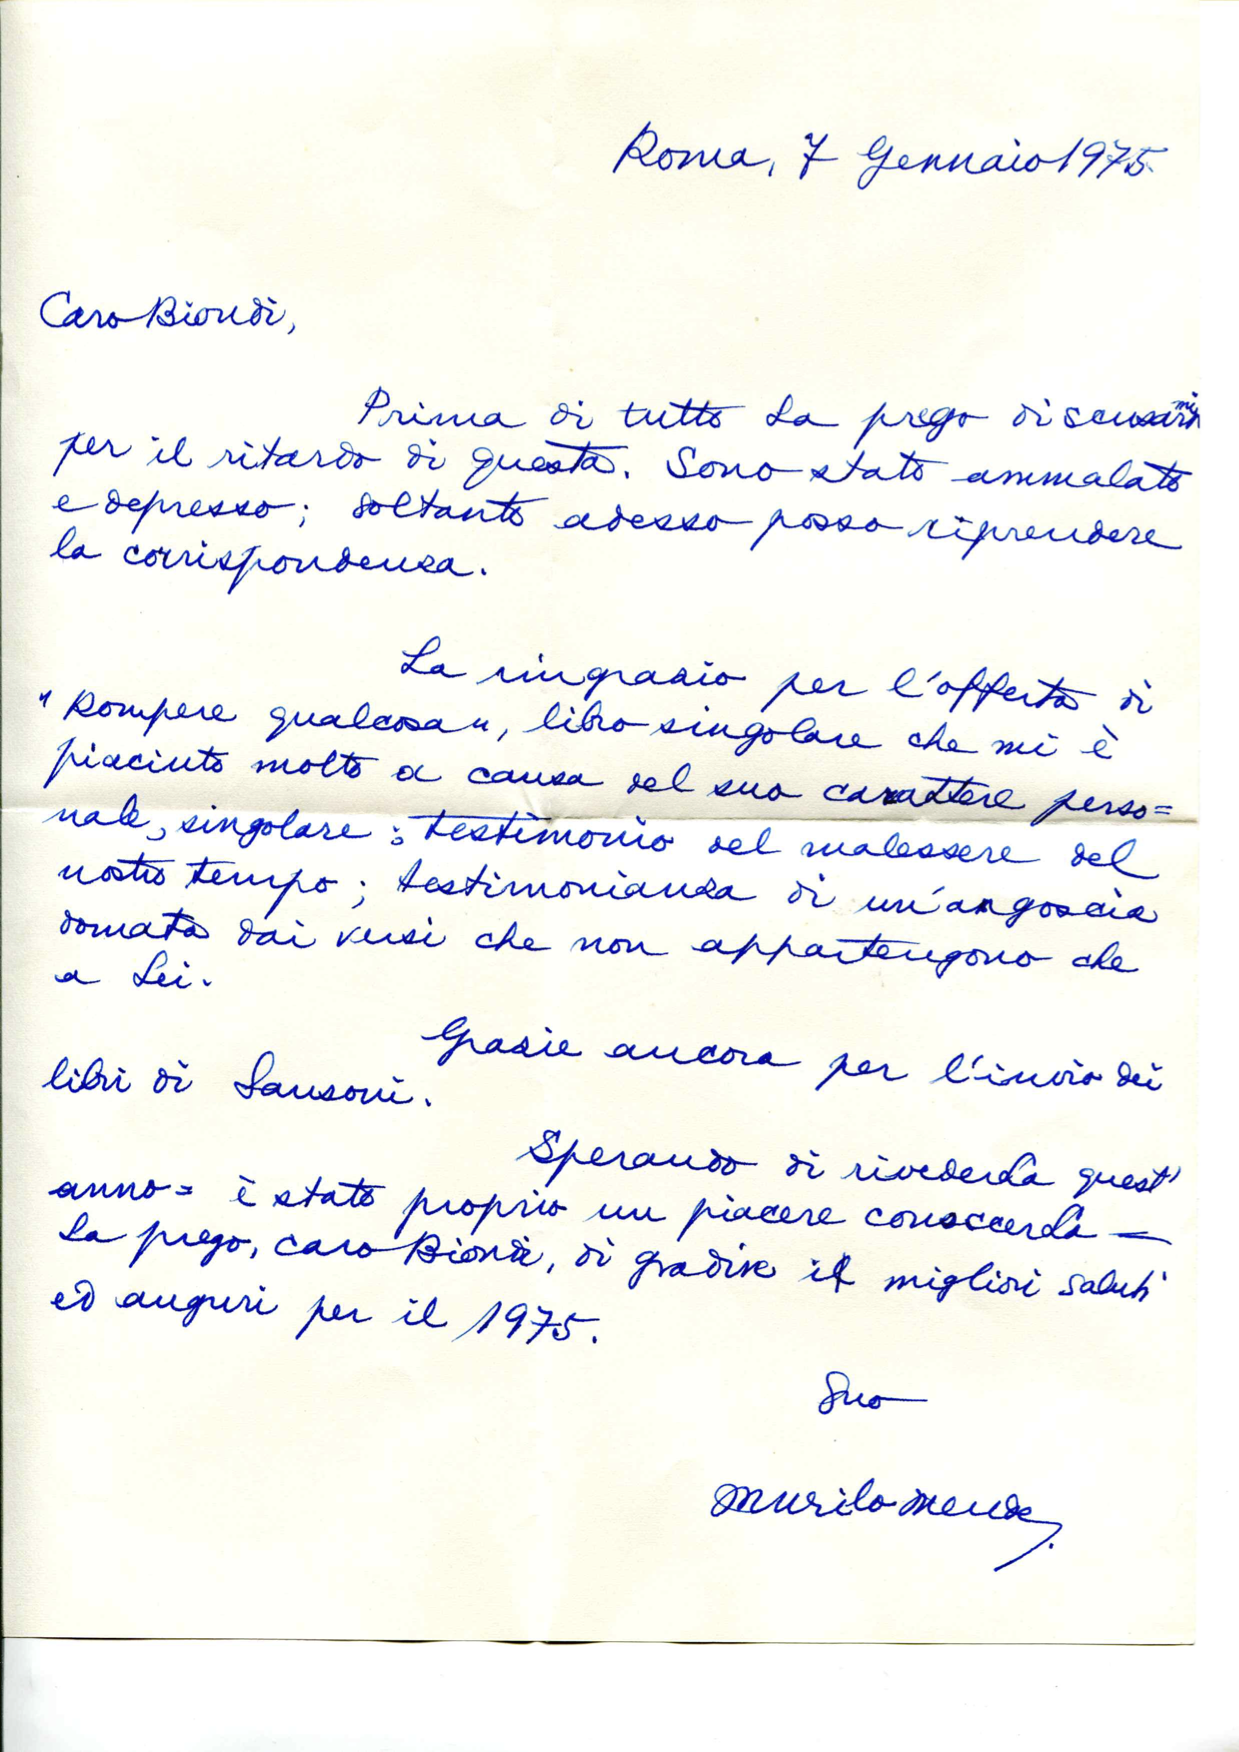 Roma, 7 Gennaio 1975.
Caro Biondi,
Prima di tutto La prego di scusarmi
per il ritardo di questa. Sono stato ammalato
e depresso; soltanto adesso posso riprendere
la corrispondenza.
La ringrazio per l'offerta di
"Rompere qualcosa", libro singolare che mi è
piaciuto molto a causa del suo carattere perso=
nale, singolare: testimonio del malessere del
nostro tempo; testimonianza di un'angoscia
domata dai versi che non appartengono che
a Lei.
Grazie ancora per l'invio dei
libri di Sansoni.
Sperando di rivederLa quest'
anno= è stato proprio un piacere conoscerLa —
La prego, caro Biondi, di gradire i migliori saluti
ed auguri per il 1975.
Suo
Murilo Mendes.